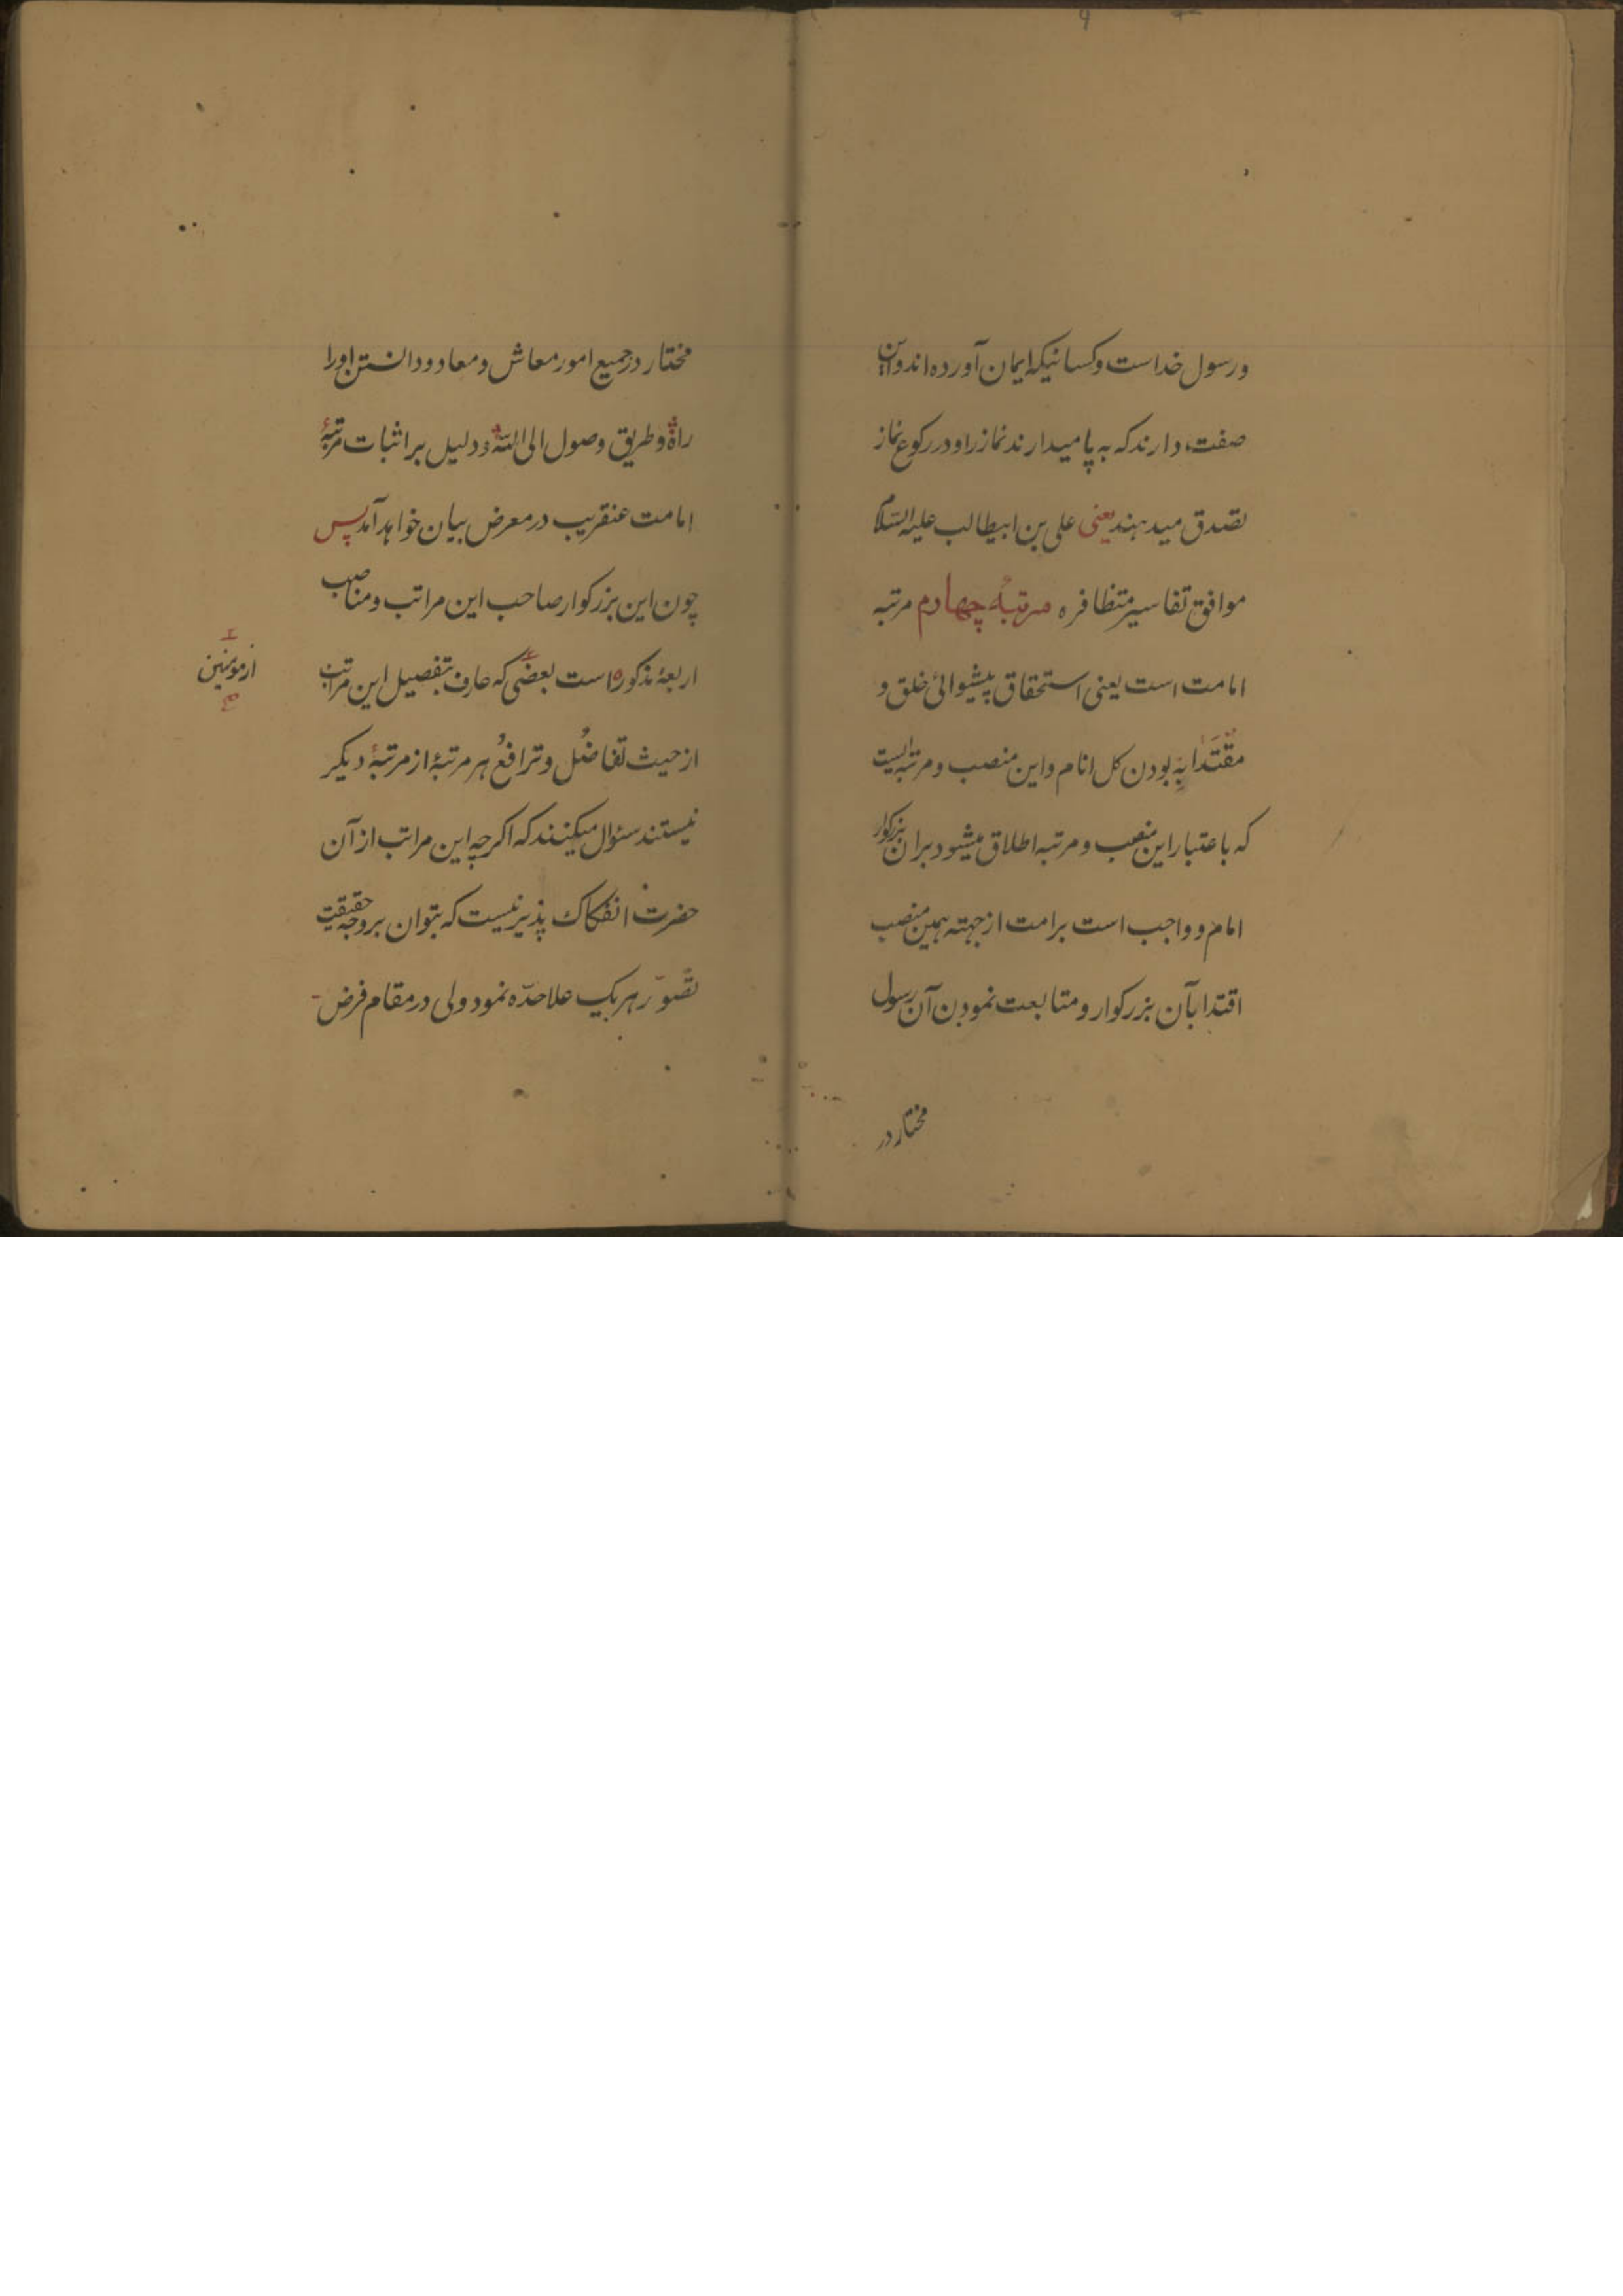 ورسول خداست وکسانیکه ایمان آورده‌اند و این
صفت دارند که به پا میدارند نماز را و در رکوع نماز
تصدق میدهند یعنی علی بن ابیطالب علیه السّلام
موافق تفاسیر متظافره مرتبهٔ چهارم مرتبه
امامت است یعنی استحقاق پیشوائی خلق و
مقتدا به بودن کل انام و این منصب و مرتبه ایست
که باعتبار این منصب و مرتبه اطلاق میشود بر ان بزرکوار
امام و واجب است بر امت از جهته همین منصب
اقتدا بآن بزرکوار و متابعت نمودن آن رسول
مختار در
مختار در جمیع امور معاش و معاد و دانستن او را
راه و طریق وصول الی الله و دلیل بر اثبات مرتبهٔ
امامت عنقریب در معرض بیان خواهد آمد پس
چون این بزرکوار صاحب این مراتب و مناصب
اربعهٔ مذکوره است بعضی که عارف بتفصیل این مراتب
از مومنین
از حیث تفاضُل و ترافعُ هر مرتبهٔ از مرتبهٔ دیکر
نیستند سئوال میکنند که اکر چه این مراتب از آن
حضرت انفکاک پذیر نیست که بتوان بر وجه حقیقت
تصوّر هر یک علاحدّه نمود ولی در مقام فرض